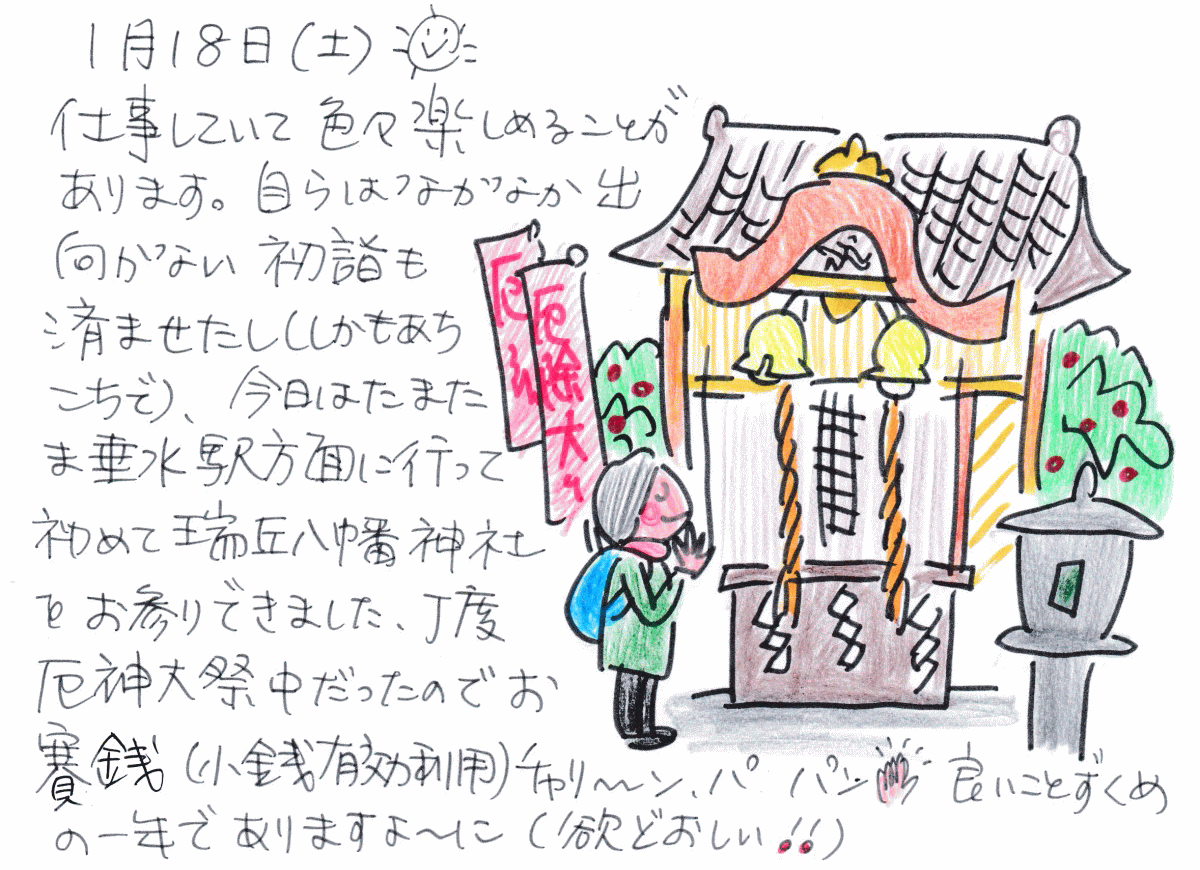 1月18日(土)
仕事していて 色々楽しめることが
あります。自らはなかなか出
向かない 初詣も
済ませたし(しかもあち
こちで)、今日はたまた
ま垂水駅方面に行って
初めて瑞丘八幡神社
をお参りできました、丁度
厄神大祭中だったのでお
賽銭(小銭有効利用)チャリ〜ン、パ パン 良いことずくめ
の一年でありますよ〜に(欲どおしい!!)
厄
厄除大